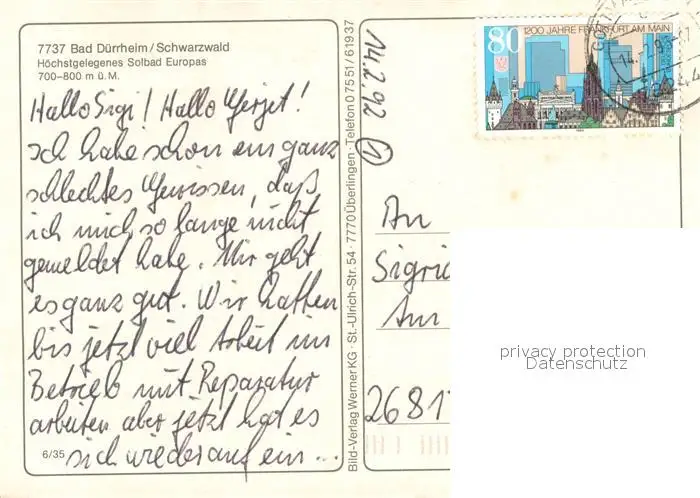 7737 Bad Dürrheim/Schwarzwald
Höchstgelegenes Solbad Europas
700-800 m ü.M.
Hallo Sigi! Hallo !
Ich habe schon ein ganz
schlechtes Gewissen, daß
ich mich so lange nicht
gemeldet habe. Mir geht
es ganz gut. Wir hatten
bis jetzt viel Arbeit im
Betrieb mit Reparatur
arbeiten aber jetzt hat es
sich wieder auf ein...
6/35
Bild-Verlag Werner KG · St.-Ulrich-Str. 54 · 7770 Überlingen · Telefon 07551/61937
14.2.92
1
80
1200 JAHRE FRANKFURT AM MAIN
An
Sigri
Am
2681
privacy protection
Datenschutz